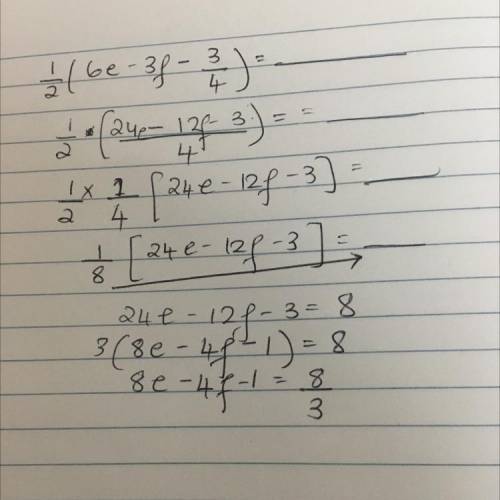 1/2 ( 6e - 3f - 3/4 ) = ____
1/2 • ( (24e - 12f - 3)/4 ) = = ____
1/2 × 1/4 [ 24e - 12f - 3 ] = ____
1/8 [ 24e - 12f - 3 ] = ____
24e - 12f - 3 = 8
3 ( 8e - 4f - 1 ) = 8
8e - 4f - 1 = 8/3